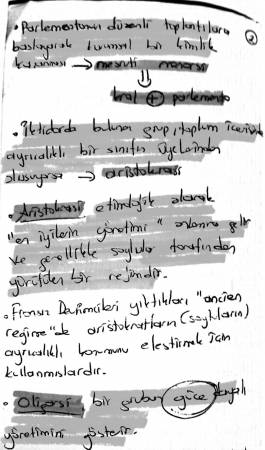 • Parlementonun düzenli toplantılara
başlayarak kurumsal bir kimlik
kazanması → meşruti monarşi
⇓
kral + parlemento
• İktidarda bulunan grup, toplum içerisinde
ayrıcalıklı bir sınıfın üyelerinden
oluşuyorsa → aristokrasi
• Aristokrasi etimolojik olarak
"en iyilerin yönetimi" anlamına gelir
ve genellikle soylular tarafından
yürütülen bir rejimdir.
• Fransız Devrimcileri yıktıkları "ancien
regime"de aristokratların (soyluların)
ayrıcalıklı konumunu eleştirmek için
kullanmışlardır.
• Oligarşi bir grubun güce dayalı
yönetimini gösterir.